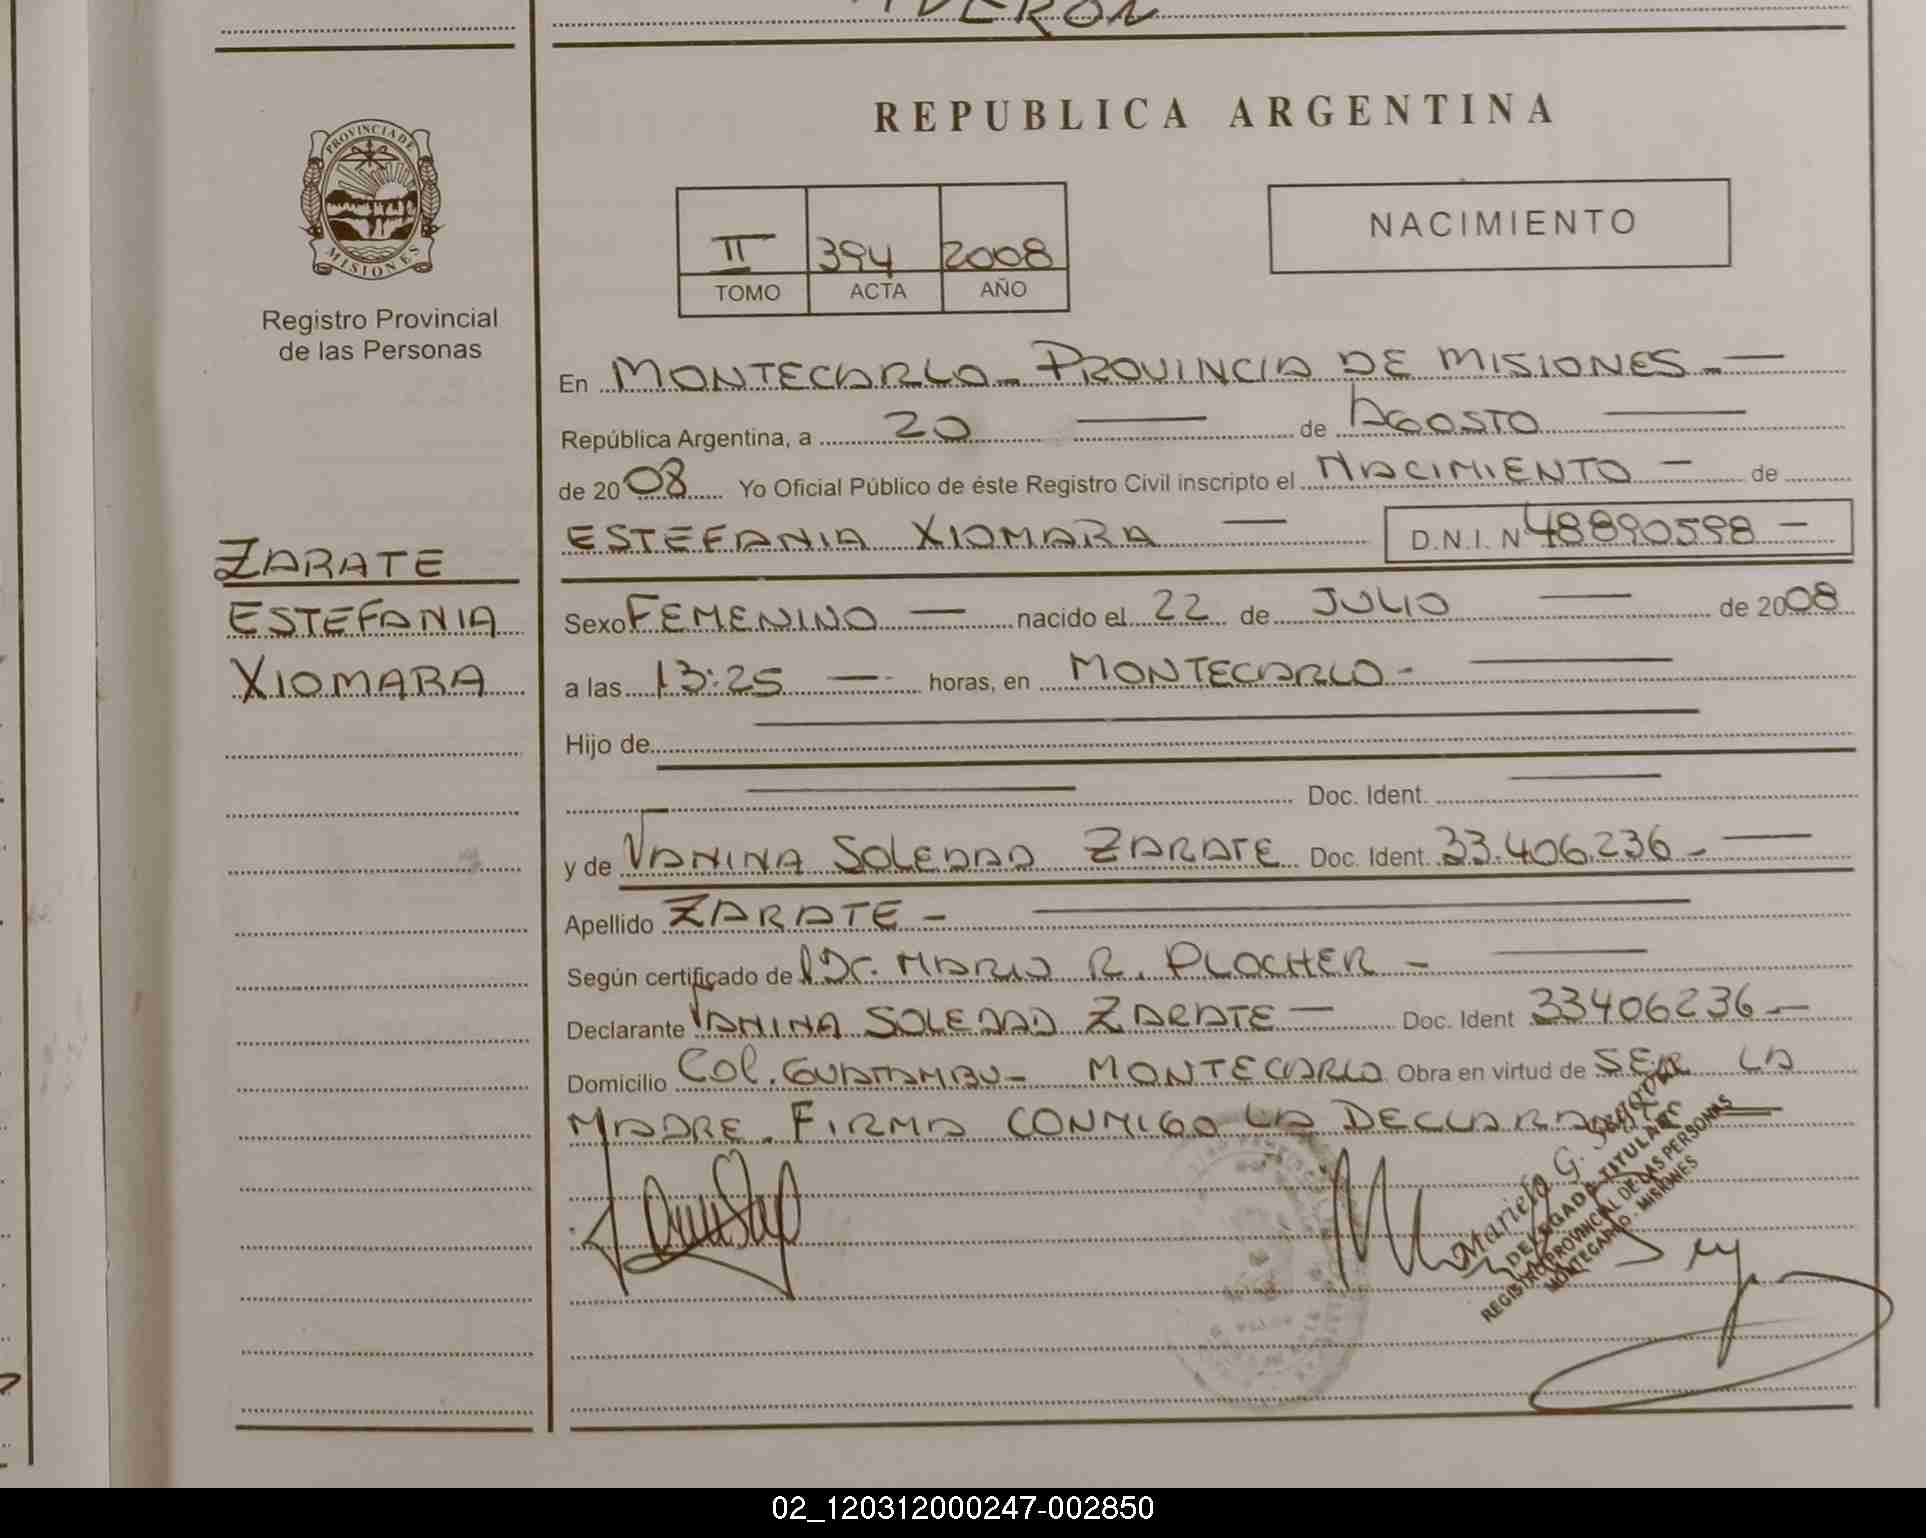 REPUBLICA ARGENTINA
PROVINCIA DE
MISIONES
Registro Provincial
de las Personas
II 394 2008
TOMO ACTA AÑO
NACIMIENTO
En MONTECARLO - PROVINCIA DE MISIONES. —
República Argentina, a 20 — de AGOSTO —
de 2008 Yo Oficial Público de éste Registro Civil inscripto el NACIMIENTO — de
ESTEFANIA XIOMARA — D.N.I. Nº 48890598 —
ZARATE
ESTEFANIA
XIOMARA
Sexo FEMENINO — nacido el 22 de JULIO — de 2008
a las 13:25 — horas, en MONTECARLO - —
Hijo de —
— Doc. Ident. —
y de VANINA SOLEDAD ZARATE Doc. Ident. 33.406.236 - —
Apellido ZARATE - —
Según certificado de Dr. MARIO R. PLOCHER - —
Declarante VANINA SOLEDAD ZARATE — Doc. Ident 33406236 —
Domicilio Col. GUATAMBU - MONTECARLO Obra en virtud de SER LA
MADRE. FIRMA CONMIGO LA
Mariela G.
DELEGADA TITULAR
REGISTRO PROVINCIAL DE LAS PERSONAS
MONTECARLO - MISIONES
02_120312000247-002850